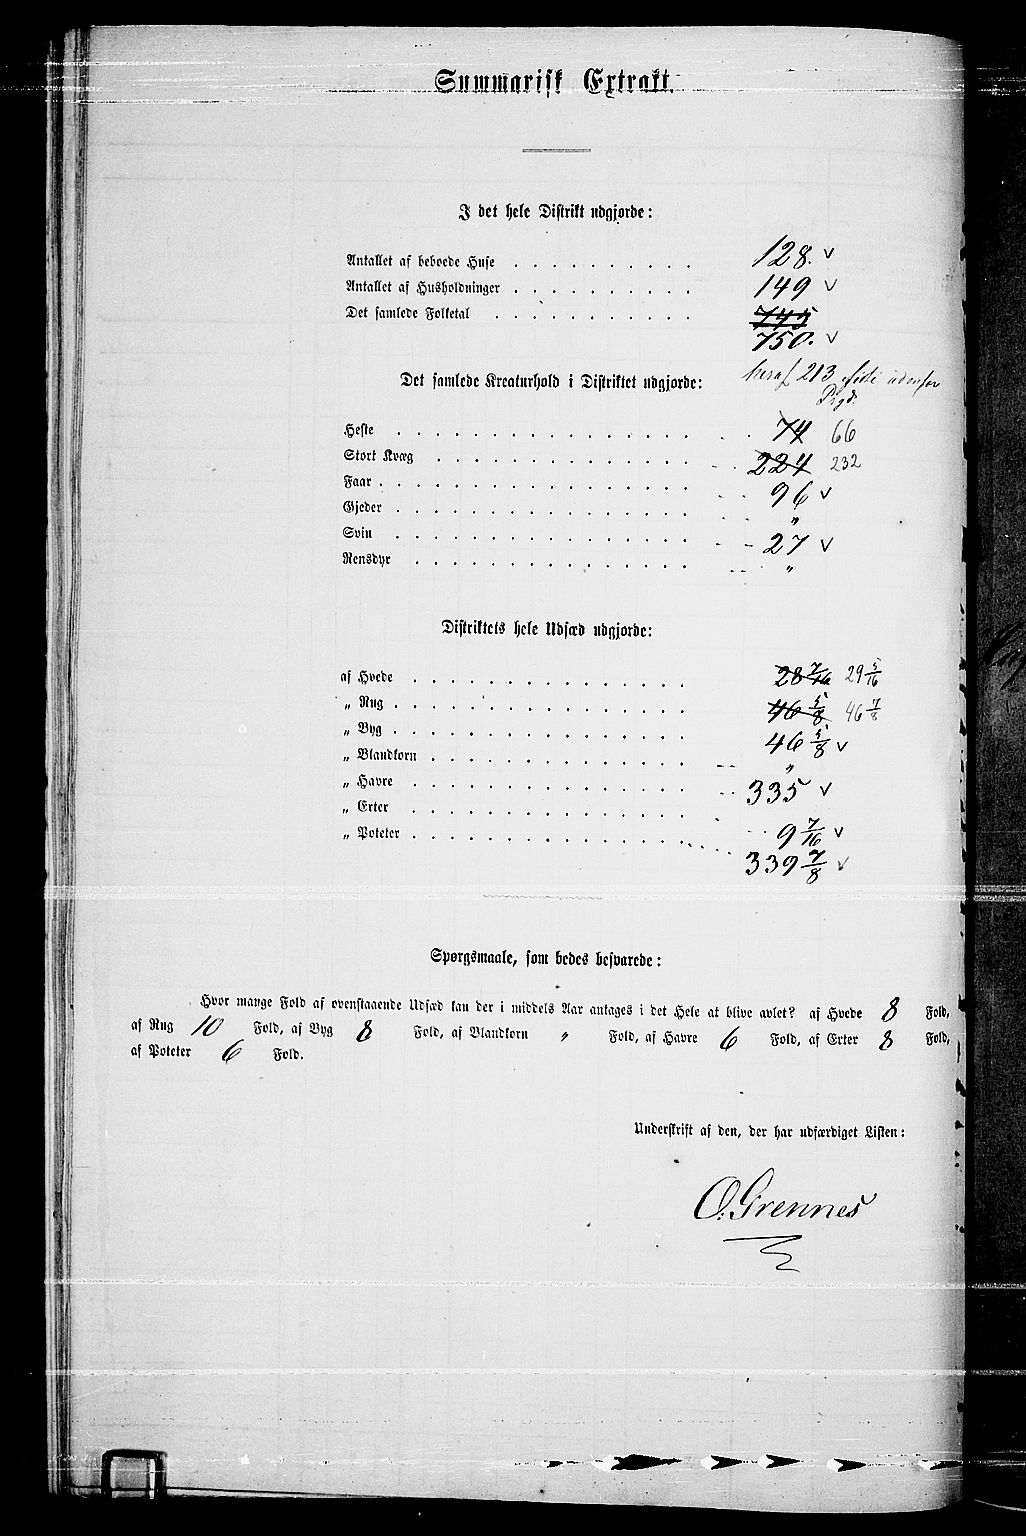 Summarisk Extrakt.
I det hele Distrikt udgjorde:
Antallet af beboede Huse . . . . . . . . . . 128. ✓
Antallet af Husholdninger . . . . . . . . . . 149 ✓
Det samlede Folketal . . . . . . . . . . . 745
750. ✓
Det samlede Kreaturhold i Distriktet udgjorde: heraf 213 udenfor
Heste . . . . . . . . . . . . . 74 66
Stort Kvæg . . . . . . . . . . . 224 232
Faar . . . . . . . . . . . . . 96 ✓
Gjeder . . . . . . . . . . . . „
Svin . . . . . . . . . . . . 27 ✓
Rensdyr . . . . . . . . . . . „
Distriktets hele Udsæd udgjorde:
af Hvede . . . . . . . . . . . 28 7/16 29 5/16
„ Rug . . . . . . . . . . . . 46 5/8 46 7/8
„ Byg . . . . . . . . . . . . 46 5/8 ✓
„ Blandkorn . . . . . . . . . . . „
„ Havre . . . . . . . . . . . 335 ✓
„ Erter . . . . . . . . . . . 9 7/16 ✓
„ Poteter . . . . . . . . . . . 339 7/8 ✓
Spørgsmaale, som bedes besvarede:
Hvor mange Fold af ovenstaaende Udsæd kan der i middels Aar antages i det Hele at blive avlet? af Hvede 8 Fold,
af Rug 10 Fold, af Byg 8 Fold, af Blandkorn „ Fold, af Havre 6 Fold, af Erter 8 Fold,
af Poteter 6 Fold.
Underskrift af den, der har udfærdiget Listen:
O. Grennes